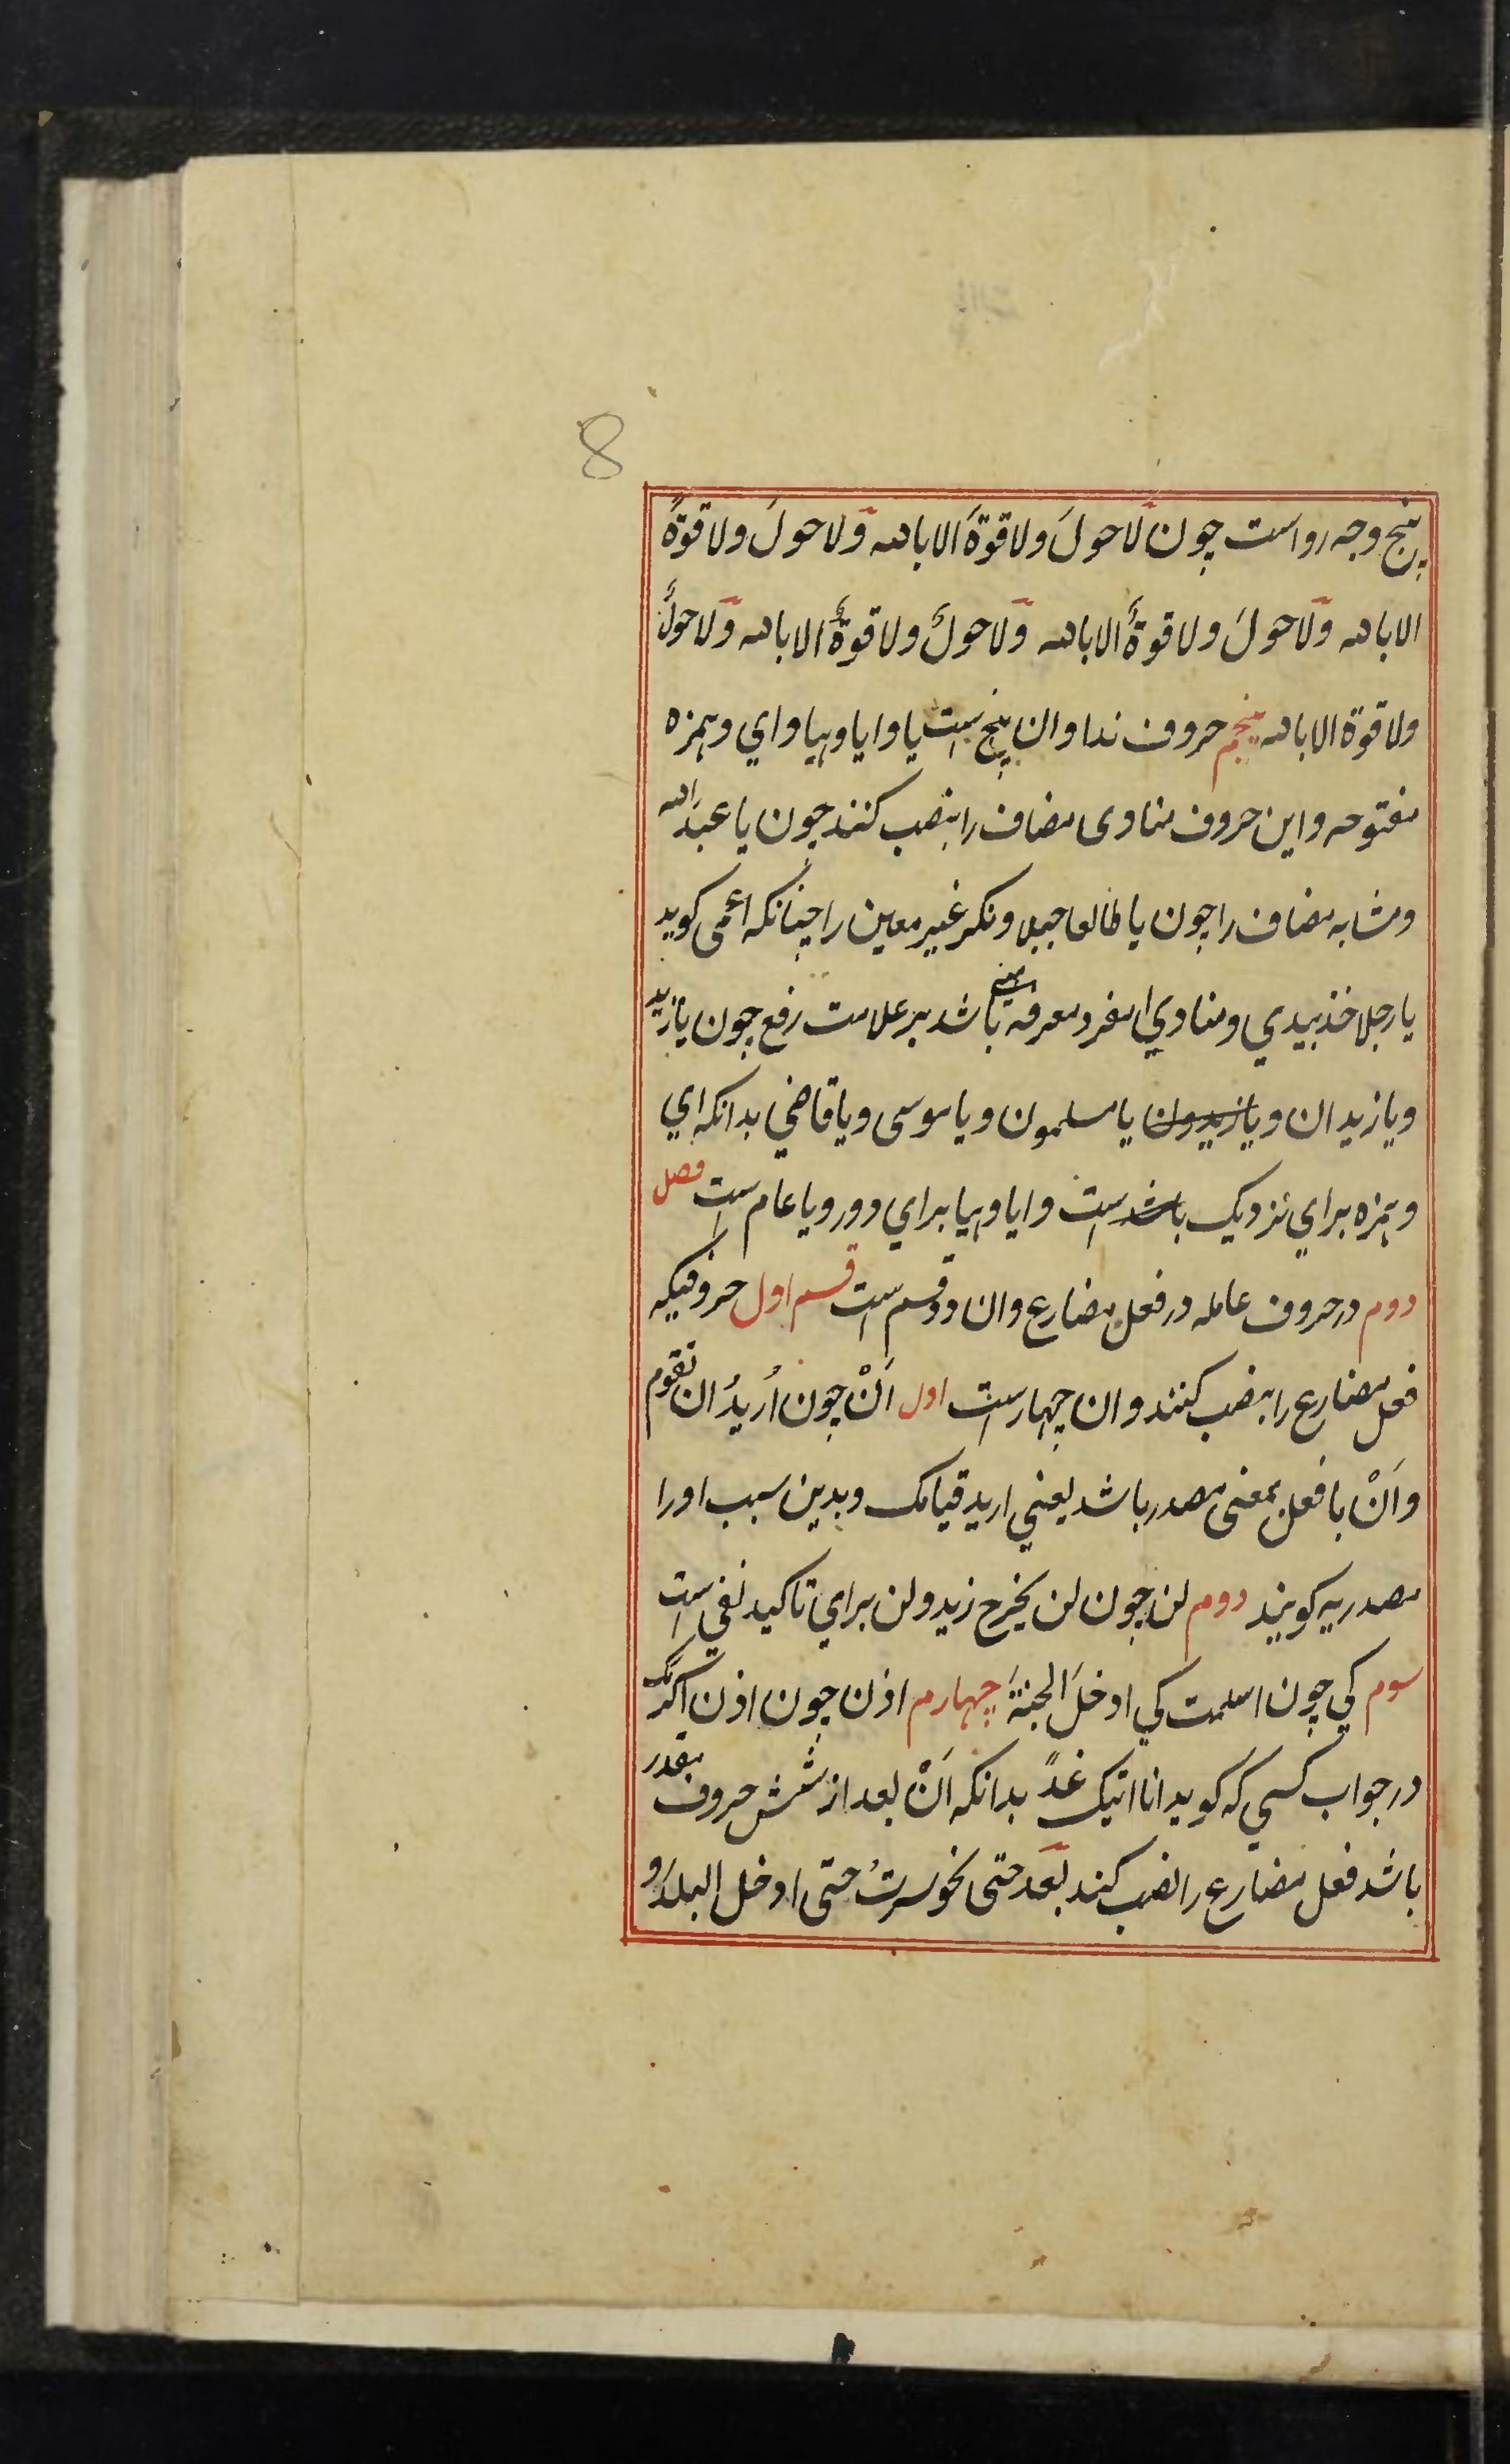 8
پنج وجه رواست چون لَا حولَ ولا قوةَ الا بالله وَلا حولَ ولا قوةً
الا بالله وَلا حولَ ولا قوةٌ الا بالله وَلا حولٌ ولا قوةٌ الا بالله وَلا حولٌ
ولا قوة الا بالله پنجم حروف ندا وان پنج ست یا وایا وهیا وای وهمزه
مفتوحه واین حروف منادی مضاف را بنصب کنند چون یا عبدَ الله
ومشابه مضاف را چون یا طالعا جبلا ونکره غیر معین را چنانکه اعمی کوید
یا رجلا خذ بیدی ومنادی مفرد معرفه مبنی باشد بر علامت رفع چون یا زید
ویا زیدان ویا زیدون یا مسلمون ویا موسی ویا قاضی بدانکه ای
وهمزه برای نزدیک باشد ست وایا وهیا برای دور ویا عام ست فصل
دوم در حروف عامله در فعل مضارع وان دو قسم ست قسم اول حروفیکه
فعل مضارع را بنصب کنند وان چهار ست اول اَنْ چون اُریدُ ان تقوم
واَنْ با فعل بمعنی مصدر باشد یعنی ارید قیامک وبدین سبب او را
مصدریه کویند دوم لن چون لن یخرج زید ولن برای تاکید نفی ست
سوم کی چون اسلمت کی ادخلَ الجنةَ چهارم اذن چون اذن اکرمک
در جواب کسی که کوید انا اتیک غدً بدانکه اَنْ بعد از شش حروف مقدر
باشد فعل مضارع را نصب کند بعد حتی نحو سرتُ حتی ادخل البلدَ و